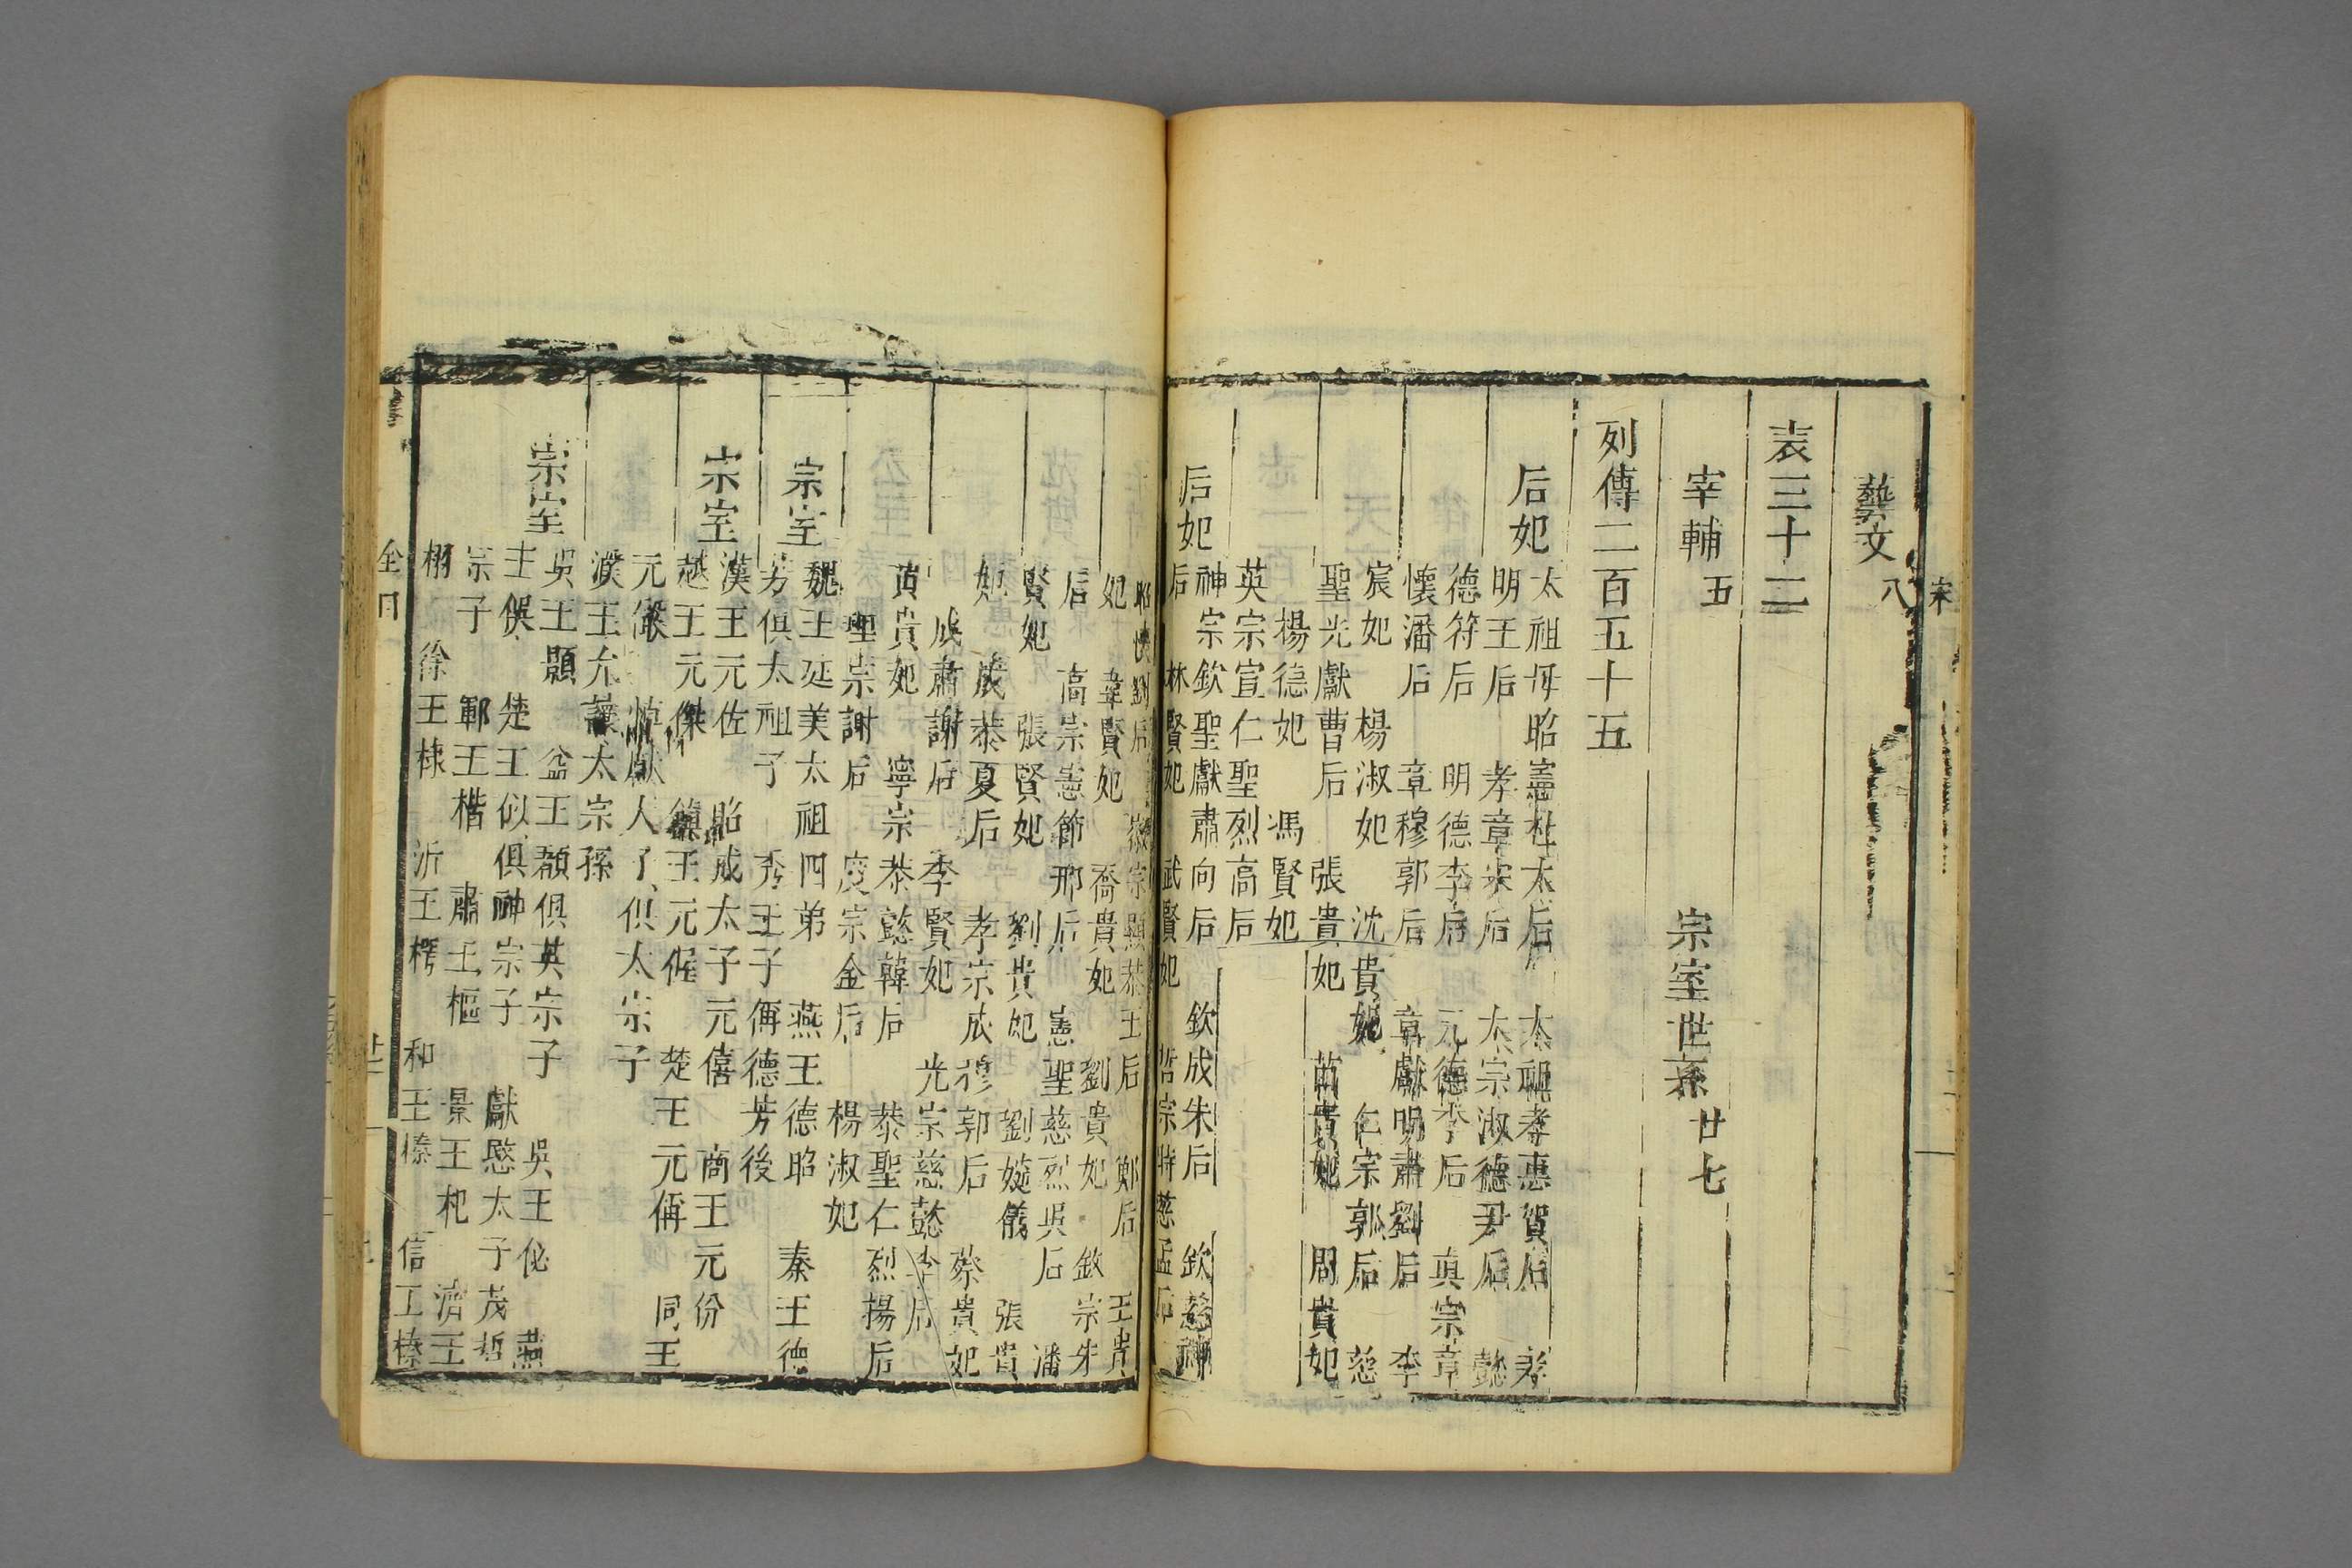 宋
藝文八
表三十二
宰輔五 宗室世系廿七
列傳二百五十五
后妃
太祖母昭憲杜太后 太祖孝惠賀后 孝
明王后 孝章宋后 太宗淑德尹后 懿
德符后 明德李后 元德李后 真宗章
懷潘后 章穆郭后 章獻明肅劉后 李
宸妃 楊淑妃 沈貴妃 仁宗郭后 慈
聖光獻曹后 張貴妃 苗貴妃 周貴妃
楊德妃 馮賢妃
英宗宣仁聖烈高后
后妃
神宗欽聖獻肅向后 欽成朱后 欽慈陳
后 林賢妃 武賢妃 哲宗 慈孟后
昭懷劉后 徽宗顯恭王后 鄭后 王貴
妃 韋賢妃 喬貴妃 劉貴妃 欽宗朱
后 高宗憲節邢后 憲聖慈烈吳后 潘
賢妃 張賢妃 劉貴妃 劉婉儀 張貴
妃
成恭夏后 孝宗成穆郭后 蔡貴妃
成肅謝后 李賢妃 光宗慈懿李后
黃貴妃 寧宗恭懿韓后 恭聖仁烈楊后
理宗謝后 度宗金后 楊淑妃
宗室
魏王延美太祖四弟 燕王德昭 秦王德
芳俱太祖子 秀王子偁德芳後
宗室
漢王元佐 昭成太子元僖 商王元份
越王元傑 鎮王元偓 楚王元偁 同王
元儼 悼獻 子俱太宗子
濮王允讓太宗孫
宗室
吳王顥 益王頵俱英宗子 吳王佖 燕
王俁 楚王似俱神宗子 獻愍太子茂哲
宗子 鄆王楷 肅王樞 景王杞 濟王
栩 徐王棣 沂王㮙 和王栻 信王榛
全目